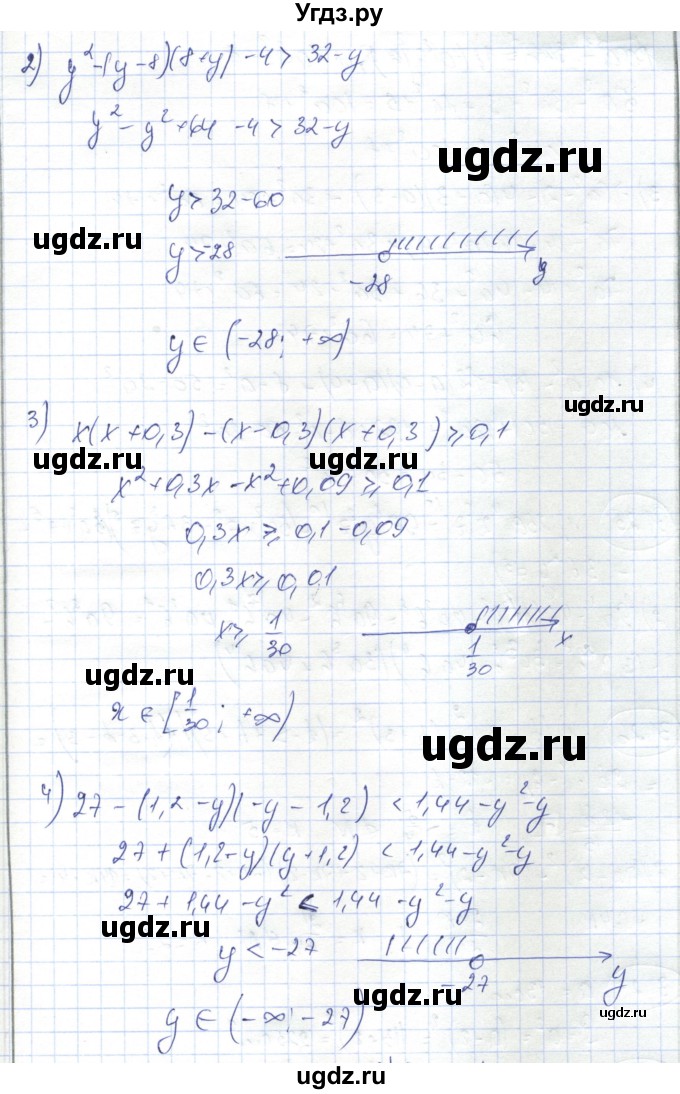 Угдз.ру
2) y² - (y - 8)(8 + y) - 4 > 32 - y
y² - y² + 64 - 4 > 32 - y
ugdz.ru
y > 32 - 60
ugdz.ru
y > -28
-28 y
y ∈ (-28; +∞)
ugdz.ru
3) x(x + 0,3) - (x - 0,3)(x + 0,3) ⩾ 0,1
ugdz.ru ugdz.ru
x² + 0,3x - x² + 0,09 ⩾ 0,1
0,3x ⩾ 0,1 - 0,09
0,3x ⩾ 0,01
x ⩾ 1/30
1/30 x
ugdz.ru
x ∈ [1/30; +∞)
ugdz.ru
4) 27 - (1,2 - y)(-y - 1,2) < 1,44 - y² - y
27 + (1,2 - y)(y + 1,2) < 1,44 - y² - y
27 + 1,44 - y² < 1,44 - y² - y
ugdz.ru
y < -27
-27 y
ugdz.ru
y ∈ (-∞; -27)
ugdz.ru
ugdz.ru